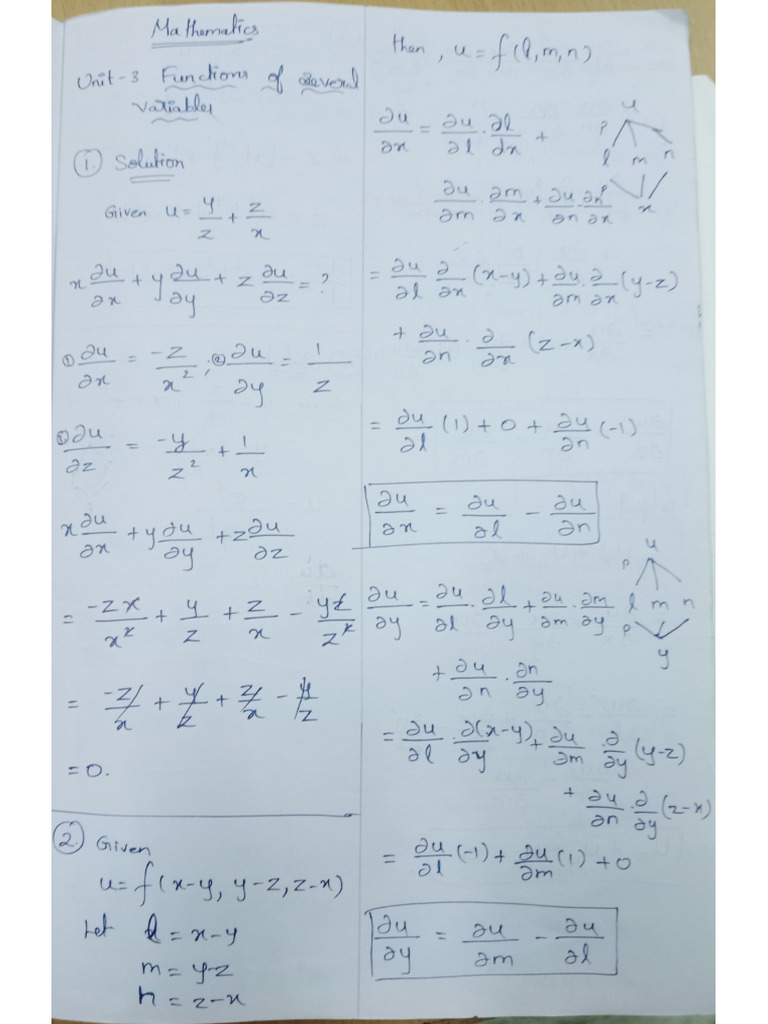 Mathematics
Unit-3 Functions of several
variables
① Solution
Given u = y/z + z/x
x ∂u/∂x + y ∂u/∂y + z ∂u/∂z = ?
① ∂u/∂x = -z/x² ; ② ∂u/∂y = 1/z
∂u/∂z = -y/z² + 1/x
x ∂u/∂x + y ∂u/∂y + z ∂u/∂z
= -zx/x² + y/z + z/x - yz/z²
= -z/x + y/z + z/x - y/z
= 0.
② Given
u = f(x-y, y-z, z-x)
Let l = x-y
m = y-z
n = z-x
then, u = f(l, m, n)
u
∂u/∂x = ∂u/∂l · ∂l/dx +
P
l m n
∂u/∂m · ∂m/∂x + ∂u/∂n · ∂n/∂x
x
= ∂u/∂l ∂/∂x (x-y) + ∂u/∂m · ∂/∂x (y-z)
+ ∂u/∂n · ∂/∂x (z-x)
= ∂u/∂l (1) + 0 + ∂u/∂n (-1)
∂u/∂x = ∂u/∂l - ∂u/∂n
u
P
∂u/∂y = ∂u/∂l · ∂l/∂y + ∂u/∂m · ∂m/∂y
l m n
P
y
+ ∂u/∂n · ∂n/∂y
= ∂u/∂l · ∂(x-y)/∂y + ∂u/∂m · ∂/∂y (y-z)
+ ∂u/∂n · ∂/∂y (z-x)
= ∂u/∂l (-1) + ∂u/∂m (1) + 0
∂u/∂y = ∂u/∂m - ∂u/∂l